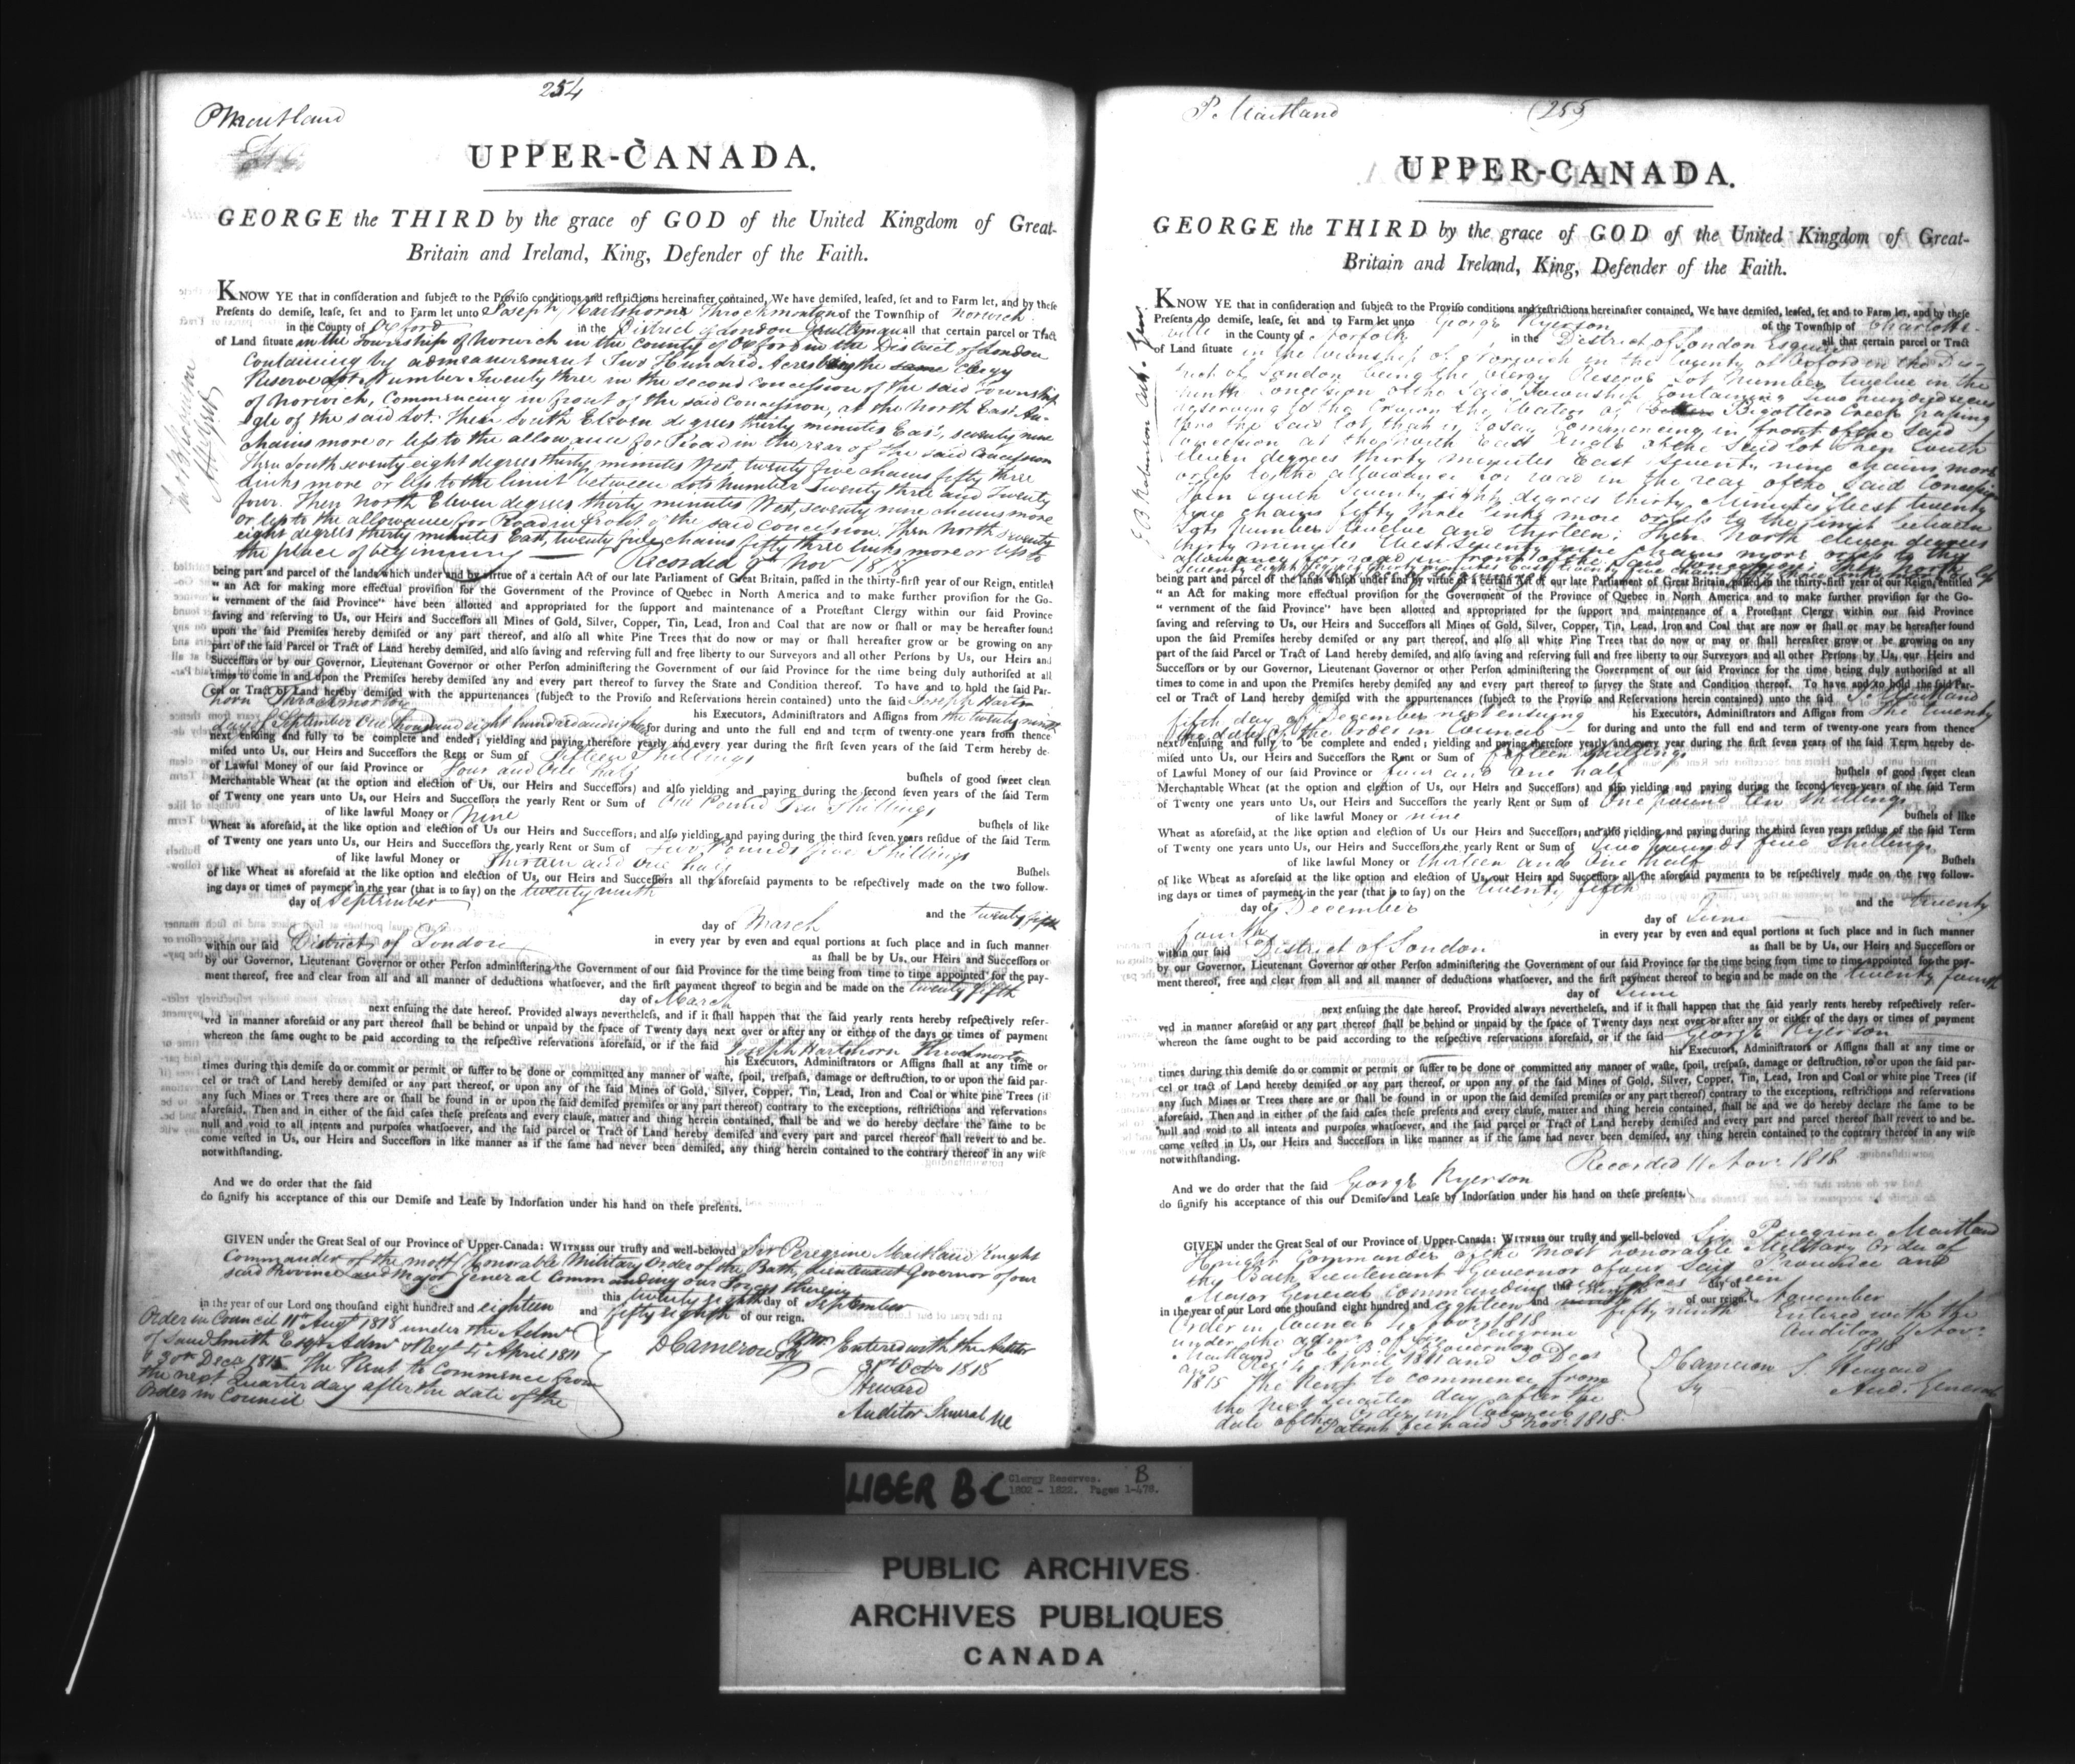 254
PMaitland
UPPER-CANADA.
GEORGE the THIRD by the grace of GOD of the United Kingdom of Great-
Britain and Ireland, King, Defender of the Faith.
KNOW YE that in consideration and subject to the Proviso conditions and restrictions hereinafter contained, We have demised, leased, set and to Farm let, and by these
Presents do demise, lease, set and to Farm let unto Joseph Hartshorn Throckmorton of the Township of Norwich
in the County of Oxford in the District of London Gentleman all that certain parcel or Tract
of Land situate in the Township of Norwich in the County of Oxford in the District of London
Containing by admeasurement Two Hundred Acres being the same Clergy
Reserve Lot Number Twenty three in the second Concession of the said Township
of Norwich, Commencing in front of the said Concession, at the North East An-
gle of the said Lot. Then South Eleven degrees thirty minutes East, seventy nine
chains more or less to the allowance for Road in the rear of the said Concession
Then South seventy eight degrees thirty minutes West twenty five chains fifty three
links more or less to the limit between Lots number Twenty three and Twenty
four. Then North Eleven degrees thirty minutes West, seventy nine chains more
or less to the allowance for Road in front of the said Concession. Then North seventy
eight degrees thirty minutes East, twenty five chains fifty three links more or less to
the place of beginning — Recorded 9th Nov 1818
being part and parcel of the lands which under and by virtue of a certain Act of our late Parliament of Great Britain, passed in the thirty-first year of our Reign, entitled
" an Act for making more effectual provision for the Government of the Province of Quebec in North America and to make further provision for the Go-
" vernment of the said Province" have been allotted and appropriated for the support and maintenance of a Protestant Clergy within our said Province
saving and reserving to Us, our Heirs and Successors all Mines of Gold, Silver, Copper, Tin, Lead, Iron and Coal that are now or shall or may be hereafter found
upon the said Premises hereby demised or any part thereof, and also all white Pine Trees that do now or may or shall hereafter grow or be growing on any
part of the said Parcel or Tract of Land hereby demised, and also saving and reserving full and free liberty to our Surveyors and all other Persons by Us, our Heirs and
Successors or by our Governor, Lieutenant Governor or other Person administering the Government of our said Province for the time being duly authorised at all
times to come in and upon the Premises hereby demised any and every part thereof to survey the State and Condition thereof. To have and to hold the said Par-
cel or Tract of Land hereby demised with the appurtenances (subject to the Proviso and Reservations herein contained) unto the said Joseph Harts
horn Throckmorton his Executors, Administrators and Assigns from the twenty ninth
day of September One thousand eight hundred and eighteen for during and unto the full end and term of twenty-one years from thence
next ensuing and fully to be complete and ended; yielding and paying therefore yearly and every year during the first seven years of the said Term hereby de-
mised unto Us, our Heirs and Successors the Rent or Sum of Fifteen Shillings
of Lawful Money of our said Province or Four and One half bushels of good sweet clean
Merchantable Wheat (at the option and election of Us, our Heirs and Successors) and also yielding and paying during the second seven years of the said Term
of Twenty one years unto Us, our Heirs and Successors the yearly Rent or Sum of One Pound Ten Shillings
of like lawful Money or Nine bushels of like
Wheat as aforesaid, at the like option and election of Us our Heirs and Successors; and also yielding and paying during the third seven years residue of the said Term
of Twenty one years unto Us, our Heirs and Successors the yearly Rent or Sum of Two Pounds five Shillings
of like lawful Money or Thirteen and One half Bushels
of like Wheat as aforesaid at the like option and election of Us, our Heirs and Successors all the aforesaid payments to be respectively made on the two follow-
ing days or times of payment in the year (that is to say) on the twenty ninth
day of September and the twenty fifth
day of March
in every year by even and equal portions at such place and in such manner
within our said District of London as shall be by Us, our Heirs and Successors or
by our Governor, Lieutenant Governor or other Person administering the Government of our said Province for the time being from time to time appointed for the pay-
ment thereof, free and clear from all and all manner of deductions whatsoever, and the first payment thereof to begin and be made on the twenty fifth
day of March
next ensuing the date hereof. Provided always nevertheless, and if it shall happen that the said yearly rents hereby respectively reser-
ved in manner aforesaid or any part thereof shall be behind or unpaid by the space of Twenty days next over or after any or either of the days or times of payment
whereon the same ought to be paid according to the respective reservations aforesaid, or if the said Joseph Hartshorn Throckmorton
his Executors, Administrators or Assigns shall at any time or
times during this demise do or commit or permit or suffer to be done or committed any manner of waste, spoil, trespass, damage or destruction, to or upon the said par-
cel or tract of Land hereby demised or any part thereof, or upon any of the said Mines of Gold, Silver, Copper, Tin, Lead, Iron and Coal or white pine Trees (if
any such Mines or Trees there are or shall be found in or upon the said demised premises or any part thereof) contrary to the exceptions, restrictions and reservations
aforesaid. Then and in either of the said cases these presents and every clause, matter and thing herein contained, shall be and we do hereby declare the same to be
null and void to all intents and purposes whatsoever, and the said parcel or Tract of Land hereby demised and every part and parcel thereof shall revert to and be-
come vested in Us, our Heirs and Successors in like manner as if the same had never been demised, any thing herein contained to the contrary thereof in any wise
notwithstanding.
And we do order that the said
do signify his acceptance of this our Demise and Lease by Indorsation under his hand on these presents.
GIVEN under the Great Seal of our Province of Upper-Canada: WITNESS our trusty and well-beloved Sir Peregrine Maitland Knight
Commander of the most Honorable Military Order of the Bath, Lieutenant Governor of our
said Province and Major General Commanding our Forces therein
this twenty eighth day of September
in the year of our Lord one thousand eight hundred and eighteen and fifty eighth of our reign.
Order in Council 11th Augt 1818 under the Admn
of Saml Smith Esqr Admr & Regt 4 April 1811
& 30th Decr 1815 The Rent to commence from
the next quarter day after the date of the
Order in Council
DCameron
Entered with the Auditor
31st Octr 1818
SHeward
Auditor General
P. Maitland
(255)
UPPER-CANADA.
GEORGE the THIRD by the grace of GOD of the United Kingdom of Great-
Britain and Ireland, King, Defender of the Faith.
KNOW YE that in consideration and subject to the Proviso conditions and restrictions hereinafter contained, We have demised, leased, set and to Farm let, and by these
Presents do demise, lease, set and to Farm let unto George Ryerson of the Township of Charlotte-
ville in the County of Norfolk in the District of London Esquire all that certain parcel or Tract
of Land situate in the Township of Norwich in the County of Oxford in the Dis-
trict of London being the Clergy Reserve Lot Number twelve in the
ninth Concession of the said Township containing two hundred acres
reserving to the Crown the Waters of Creek passing
thro the said lot, that is to say Commencing in front of the said
Concession at the North East Angle of the said lot then South
eleven degrees thirty minutes East seventy nine chains more
or less to the allowance for road in the rear of the said Concession
Then South seventy eight degrees thirty Minutes West twenty
five chains fifty three links more or less to the limit between
Lots Number twelve and thirteen; Then North eleven degrees
thirty minutes West seventy nine chains more or less to the
allowance for road in front of the said Concession; Then North
being part and parcel of the lands which under and by virtue of a certain Act of our late Parliament of Great Britain, passed in the thirty-first year of our Reign, entitled
" an Act for making more effectual provision for the Government of the Province of Quebec in North America and to make further provision for the Go-
" vernment of the said Province" have been allotted and appropriated for the support and maintenance of a Protestant Clergy within our said Province
saving and reserving to Us, our Heirs and Successors all Mines of Gold, Silver, Copper, Tin, Lead, Iron and Coal that are now or shall or may be hereafter found
upon the said Premises hereby demised or any part thereof, and also all white Pine Trees that do now or may or shall hereafter grow or be growing on any
part of the said Parcel or Tract of Land hereby demised, and also saving and reserving full and free liberty to our Surveyors and all other Persons by Us, our Heirs and
Successors or by our Governor, Lieutenant Governor or other Person administering the Government of our said Province for the time being duly authorised at all
times to come in and upon the Premises hereby demised any and every part thereof to survey the State and Condition thereof. To have and to hold the said Par-
cel or Tract of Land hereby demised with the appurtenances (subject to the Proviso and Reservations herein contained) unto the said
his Executors, Administrators and Assigns from the twenty
fifth day of December next ensuing
the date of the Order in Council — for during and unto the full end and term of twenty-one years from thence
next ensuing and fully to be complete and ended; yielding and paying therefore yearly and every year during the first seven years of the said Term hereby de-
mised unto Us, our Heirs and Successors the Rent or Sum of fifteen Shillings
of Lawful Money of our said Province or four and one half bushels of good sweet clean
Merchantable Wheat (at the option and election of Us, our Heirs and Successors) and also yielding and paying during the second seven years of the said Term
of Twenty one years unto Us, our Heirs and Successors the yearly Rent or Sum of One pound ten shillings
of like lawful Money or nine bushels of like
Wheat as aforesaid, at the like option and election of Us our Heirs and Successors; and also yielding and paying during the third seven years residue of the said Term
of Twenty one years unto Us, our Heirs and Successors the yearly Rent or Sum of Two pounds five Shillings
of like lawful Money or thirteen and One half Bushels
of like Wheat as aforesaid at the like option and election of Us, our Heirs and Successors all the aforesaid payments to be respectively made on the two follow-
ing days or times of payment in the year (that is to say) on the twenty fifth
day of December and the twenty
fourth day of June
in every year by even and equal portions at such place and in such manner
within our said District of London as shall be by Us, our Heirs and Successors or
by our Governor, Lieutenant Governor or other Person administering the Government of our said Province for the time being from time to time appointed for the pay-
ment thereof, free and clear from all and all manner of deductions whatsoever, and the first payment thereof to begin and be made on the twenty fourth
day of June
next ensuing the date hereof. Provided always nevertheless, and if it shall happen that the said yearly rents hereby respectively reser-
ved in manner aforesaid or any part thereof shall be behind or unpaid by the space of Twenty days next over or after any or either of the days or times of payment
whereon the same ought to be paid according to the respective reservations aforesaid, or if the said George Ryerson
his Executors, Administrators or Assigns shall at any time or
times during this demise do or commit or permit or suffer to be done or committed any manner of waste, spoil, trespass, damage or destruction, to or upon the said par-
cel or tract of Land hereby demised or any part thereof, or upon any of the said Mines of Gold, Silver, Copper, Tin, Lead, Iron and Coal or white pine Trees (if
any such Mines or Trees there are or shall be found in or upon the said demised premises or any part thereof) contrary to the exceptions, restrictions and reservations
aforesaid, Then and in either of the said cases these presents and every clause, matter and thing herein contained, shall be and we do hereby declare the same to be
null and void to all intents and purposes whatsoever, and the said parcel or Tract of Land hereby demised and every part and parcel thereof shall revert to and be-
come vested in Us, our Heirs and Successors in like manner as if the same had never been demised, any thing herein contained to the contrary thereof in any wise
notwithstanding.
Recorded 11 Nov. 1818
And we do order that the said George Ryerson
do signify his acceptance of this our Demise and Lease by Indorsation under his hand on these presents.
GIVEN under the Great Seal of our Province of Upper-Canada: WITNESS our trusty and well-beloved Sir Peregrine Maitland
Knight Commander of the most honorable Military Order of
the Bath Lieutenant Governor of our said Province and
Major General Commanding our forces therein
this day of November
in the year of our Lord one thousand eight hundred and eighteen and fifty ninth of our reign.
Order in Council 4 Novr 1818
under the admn of Sir Peregrine
Maitland K.C.B. Lt Governor
and Regt 4 April 1811 and 30 Decr
1815 The Rent to commence from
the next quarter day after the
date of the Order in Council
Patent fee paid 5 Novr 1818.
DCameron
Sy
Entered with the
Auditor 9 Novr
1818
S. Heward
Aud. General
LIBER B-C
Clergy Reserves. B
1802 - 1822. Pages 1-478.
PUBLIC ARCHIVES
ARCHIVES PUBLIQUES
CANADA